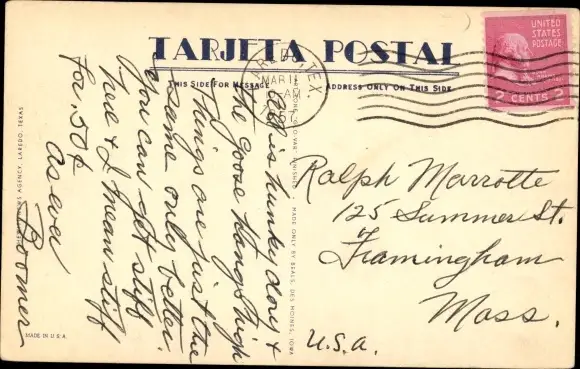 TARJETA POSTAL
THIS SIDE FOR MESSAGE
ADDRESS ONLY ON THIS SIDE
UNITED
STATES
POSTAGE
2 CENTS 2
TEX.
MAR 11
AM
All is hunky dory &
the goose hangs high
Things are just the
same only better.
You can get stiff
here & I mean stiff
for .50¢
As ever
Boomer
Ralph Marrotte
125 Summer St.
Framingham
Mass.
U.S.A.
NEWS AGENCY, LAREDO, TEXAS
MADE ONLY BY BEALS, DES MOINES, IOWA
MADE IN U.S.A.